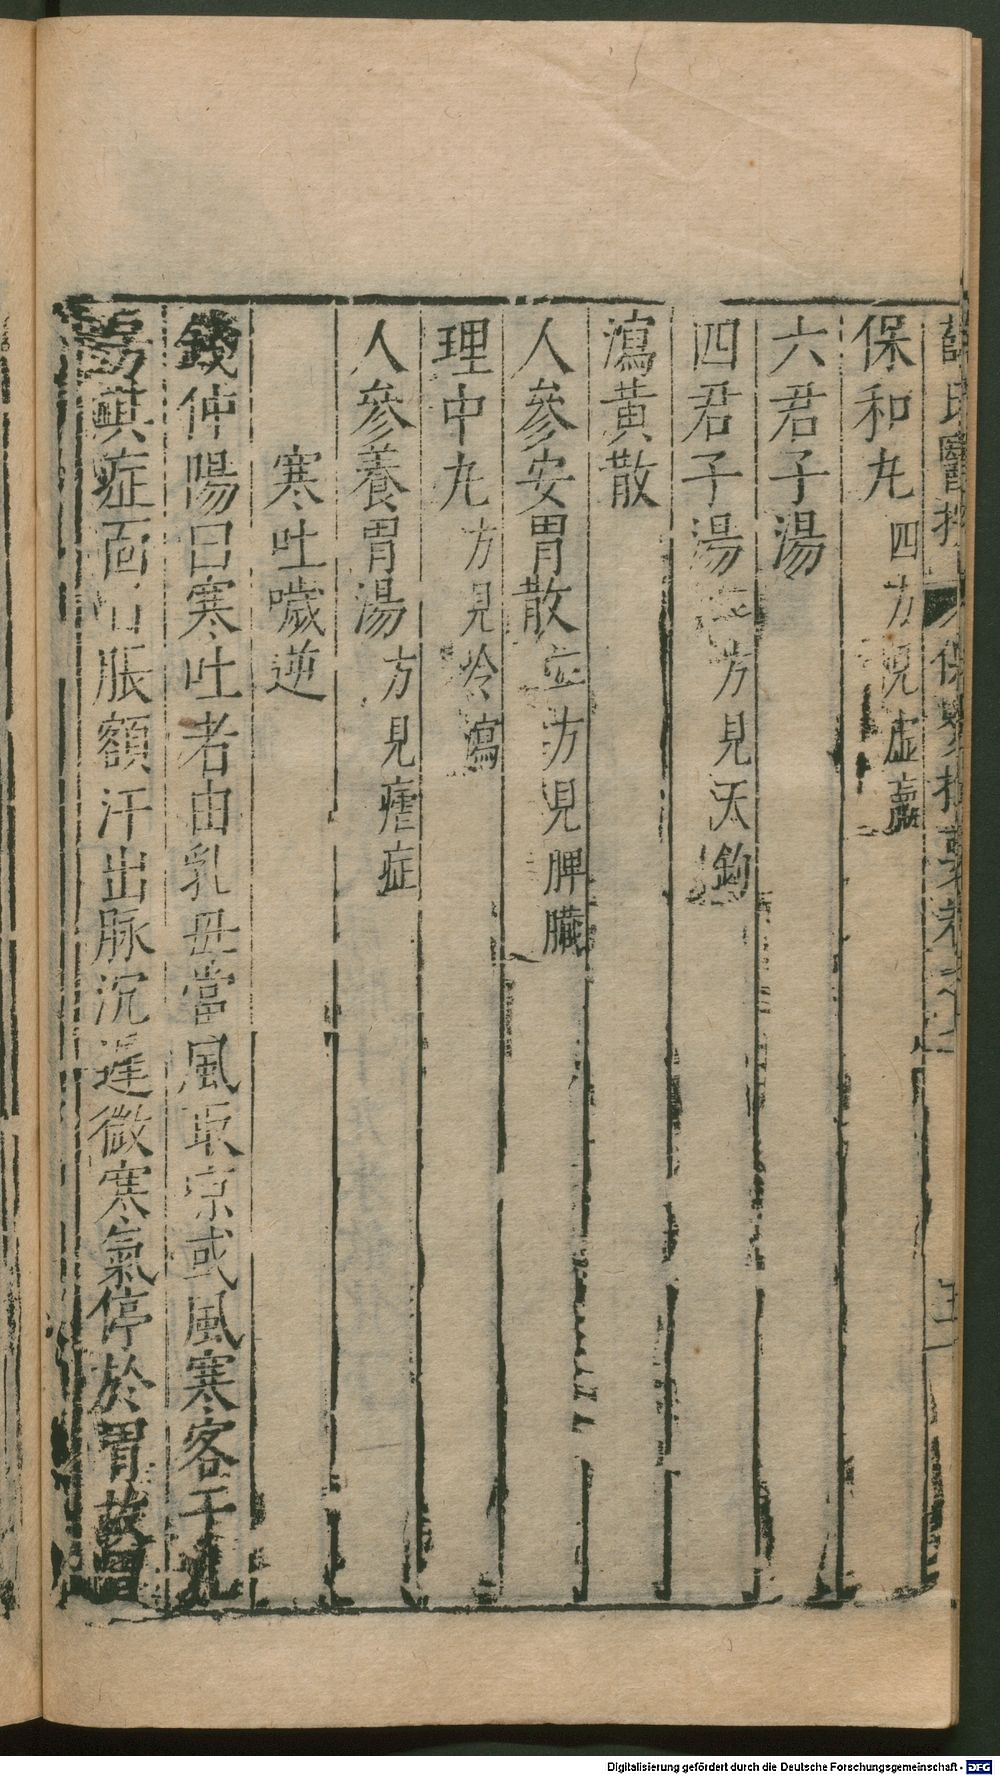 薛氏醫按 保嬰撮要卷之七
保和丸四方見虛羸
六君子湯
四君子湯二方見天釣
瀉黃散
人參安胃散二方見脾臟
理中丸方見冷瀉
人參養胃湯方見瘧症
寒吐噦逆
錢仲陽曰寒吐者由乳母當風取凉或風寒客于
症面 脹額汗出脉沉遲微寒氣停於胃故
Digitalisierung gefördert durch die Deutsche Forschungsgemeinschaft - DFG